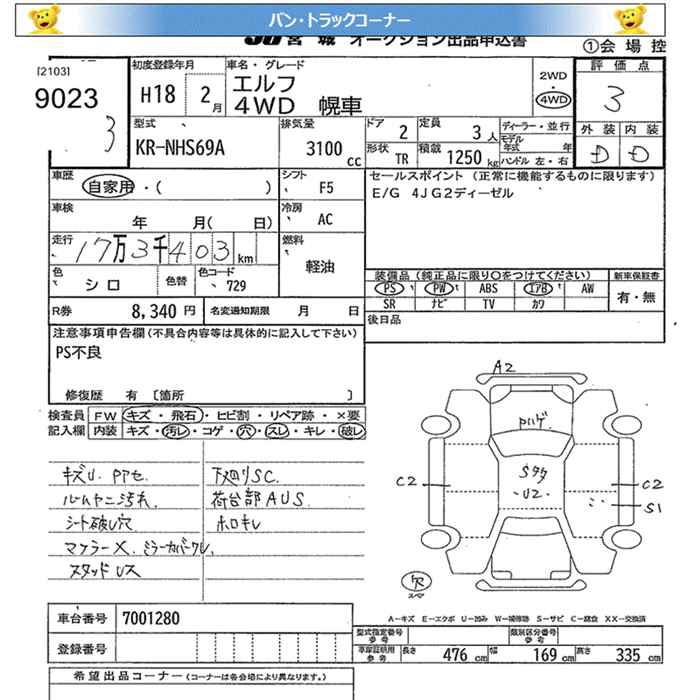 バン・トラックコーナー
JU宮城 オークション出品申込書
①会場控
[2103]
9023
3
初度登録年月
H18 2月
車名・グレード
エルフ
4WD 幌車
2WD
・
4WD
評価点
3
外装 内装
D D
型式
KR-NHS69A
排気量
3100cc
ドア 2
定員 3人
形状 TR
積載 1250kg
ディーラー・並行
モデル年式 年
ハンドル 左・右
車歴
自家用・( )
シフト F5
車検
年 月( 日)
冷房 AC
走行
17万3千403km
燃料
軽油
色
シロ
色替
色コード
729
R券 8,340円
名変通知期限 月 日
セールスポイント (正常に機能するものに限ります)
E/G 4JG2ディーゼル
装備品 (純正品に限り○をつけてください)
PS PW ABS エアB AW
SR ナビ TV カワ
新車保証書
有・無
後日品
注意事項申告欄 (不具合内容等は具体的に記入して下さい)
PS不良
修復歴 有 [箇所 ]
検査員記入欄
FW キズ・飛石・ヒビ割・リペア跡・×要
内装 キズ・汚レ・コゲ・穴・スレ・キレ・破レ
キズU.
ルームヤニ汚れ
シート破レ穴
マフラーX. ミラーカバーワレ,
スタッドUS
下廻りSC.
荷台部AUS
ホロキレ
A2
Pハゲ
U2
C2
C2
S1
欠
スペア
A-キズ E-エクボ U-凹み W-補修跡 S-サビ C-腐食 XX-交換済
車台番号 7001280
登録番号
型式指定番号 参考
類別区分番号 参考
車庫証明用 参考
長さ 476cm 幅 169cm 高さ 335cm
希望出品コーナー (コーナーは各会場により異なります。)